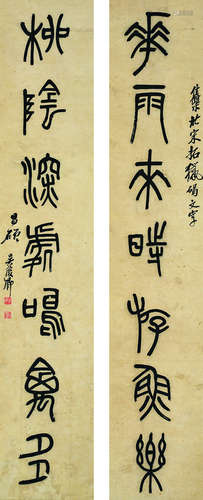 華雨來時游魚樂
集北宋拓獵碣文字
柳陰深處鳴禽多
昌碩吳俊卿